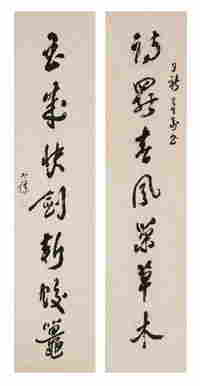 詩罷春風榮草木
書成快劍斬蛟鼉